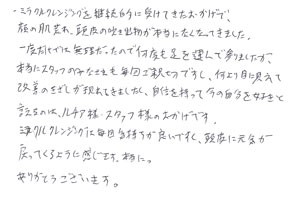 ・ミラクルクレンジングを継続的に受けてきたおかげで、
顔の肌荒れ、頭皮の吹き出物が本当になくなってきました。
一度だけでは無理だったので何度も足を運んで参りましたが、
本当にスタッフのみなさまも毎回ご親切ですし、何より目に見えて
改善のきざしが現れてきましたし、自信を持って今の自分を好きと
言えるのは、ルチア様・スタッフ様のおかげです。
クレンジングは毎回気持ちが良いですし、頭皮に元気が
戻ってくるように感じます。本当に。
ありがとうございます。